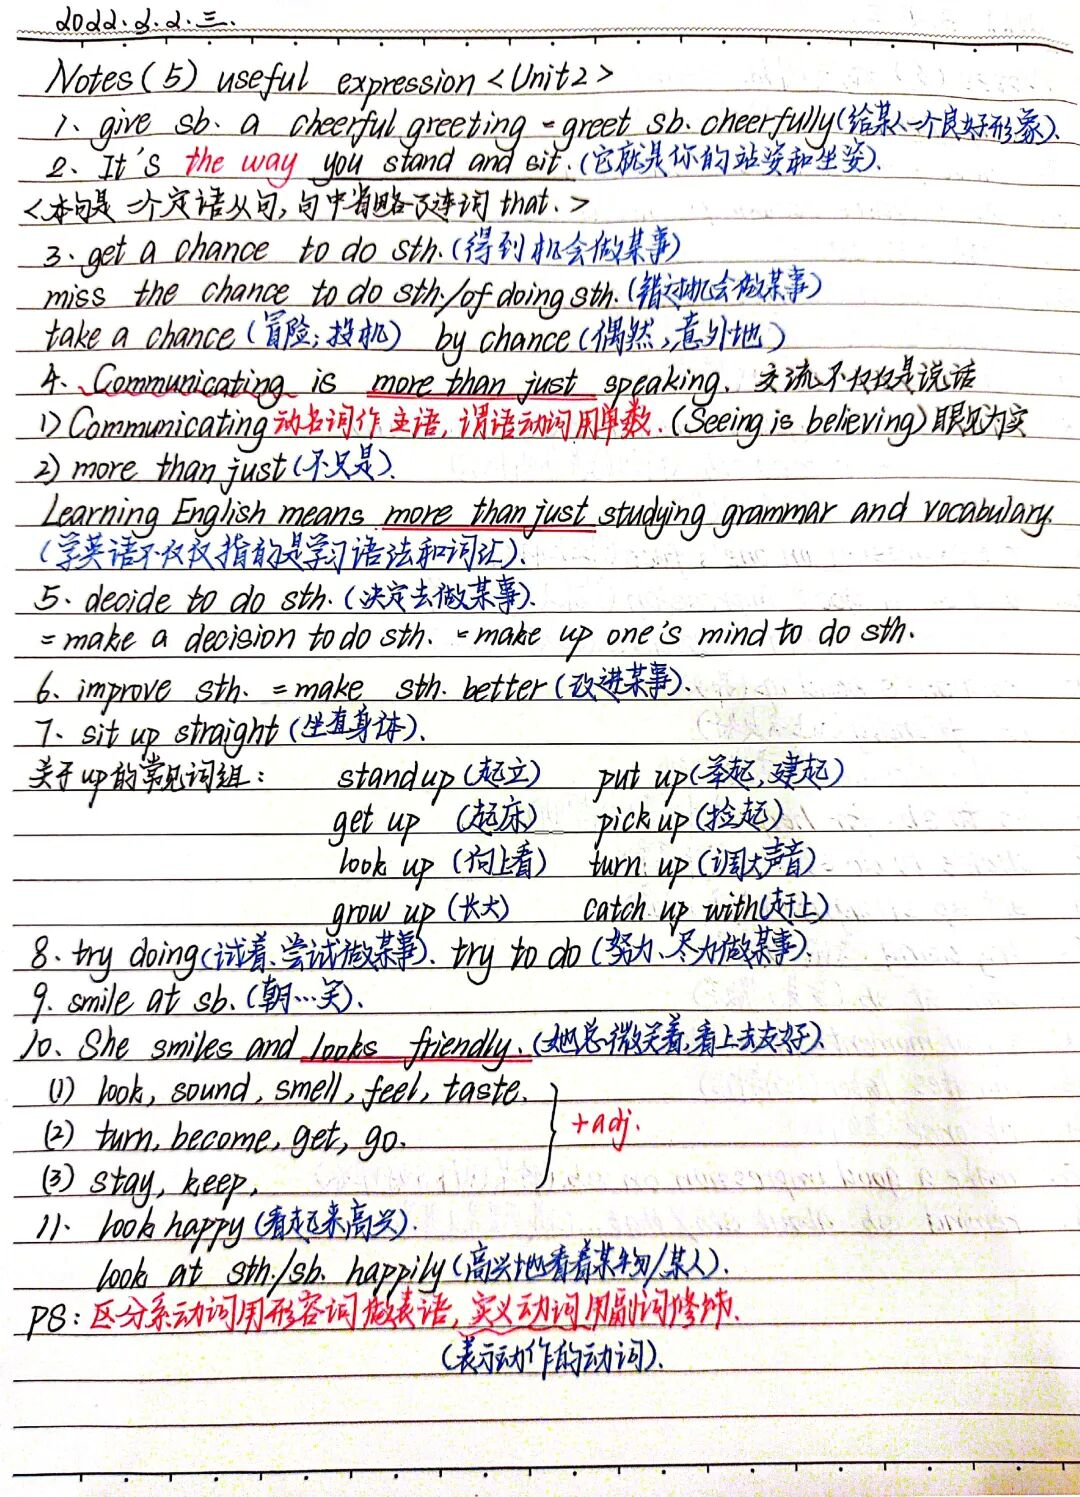 2022.3.2.三.
Notes(5) useful expression <Unit2>
1、give sb. a cheerful greeting = greet sb. cheerfully(给某人一个良好形象).
2、It's the way you stand and sit.(它就是你的站姿和坐姿).
<本句是一个定语从句,句中省略了连词 that.>
3、get a chance to do sth.(得到机会做某事)
miss the chance to do sth./of doing sth.(错过机会做某事)
take a chance(冒险;投机) by chance(偶然,意外地)
4、Communicating is more than just speaking. 交流不仅仅是说话
1) Communicating 动名词作主语,谓语动词用单数.(Seeing is believing)眼见为实
2) more than just(不只是).
Learning English means more than just studying grammar and vocabulary.
(学英语不仅仅指的是学习语法和词汇).
5、decide to do sth.(决定去做某事).
= make a decision to do sth. = make up one's mind to do sth.
6、improve sth. = make sth. better(改进某事).
7、sit up straight(坐直身体).
关于up的常见词组: stand up(起立) put up(举起,建起)
get up (起床) pick up(捡起)
look up (向上看) turn up(调大声音)
grow up (长大) catch up with(赶上)
8、try doing(试着、尝试做某事). try to do(努力、尽力做某事).
9、smile at sb.(朝…笑).
10、She smiles and looks friendly.(她总微笑着,看上去友好).
(1) look, sound, smell, feel, taste.
(2) turn, become, get, go. +adj.
(3) stay, keep,
11、look happy(看起来高兴).
look at sth./sb. happily(高兴地看着某物/某人).
PS:区分系动词用形容词做表语,实义动词用副词修饰.
(表示动作的动词).